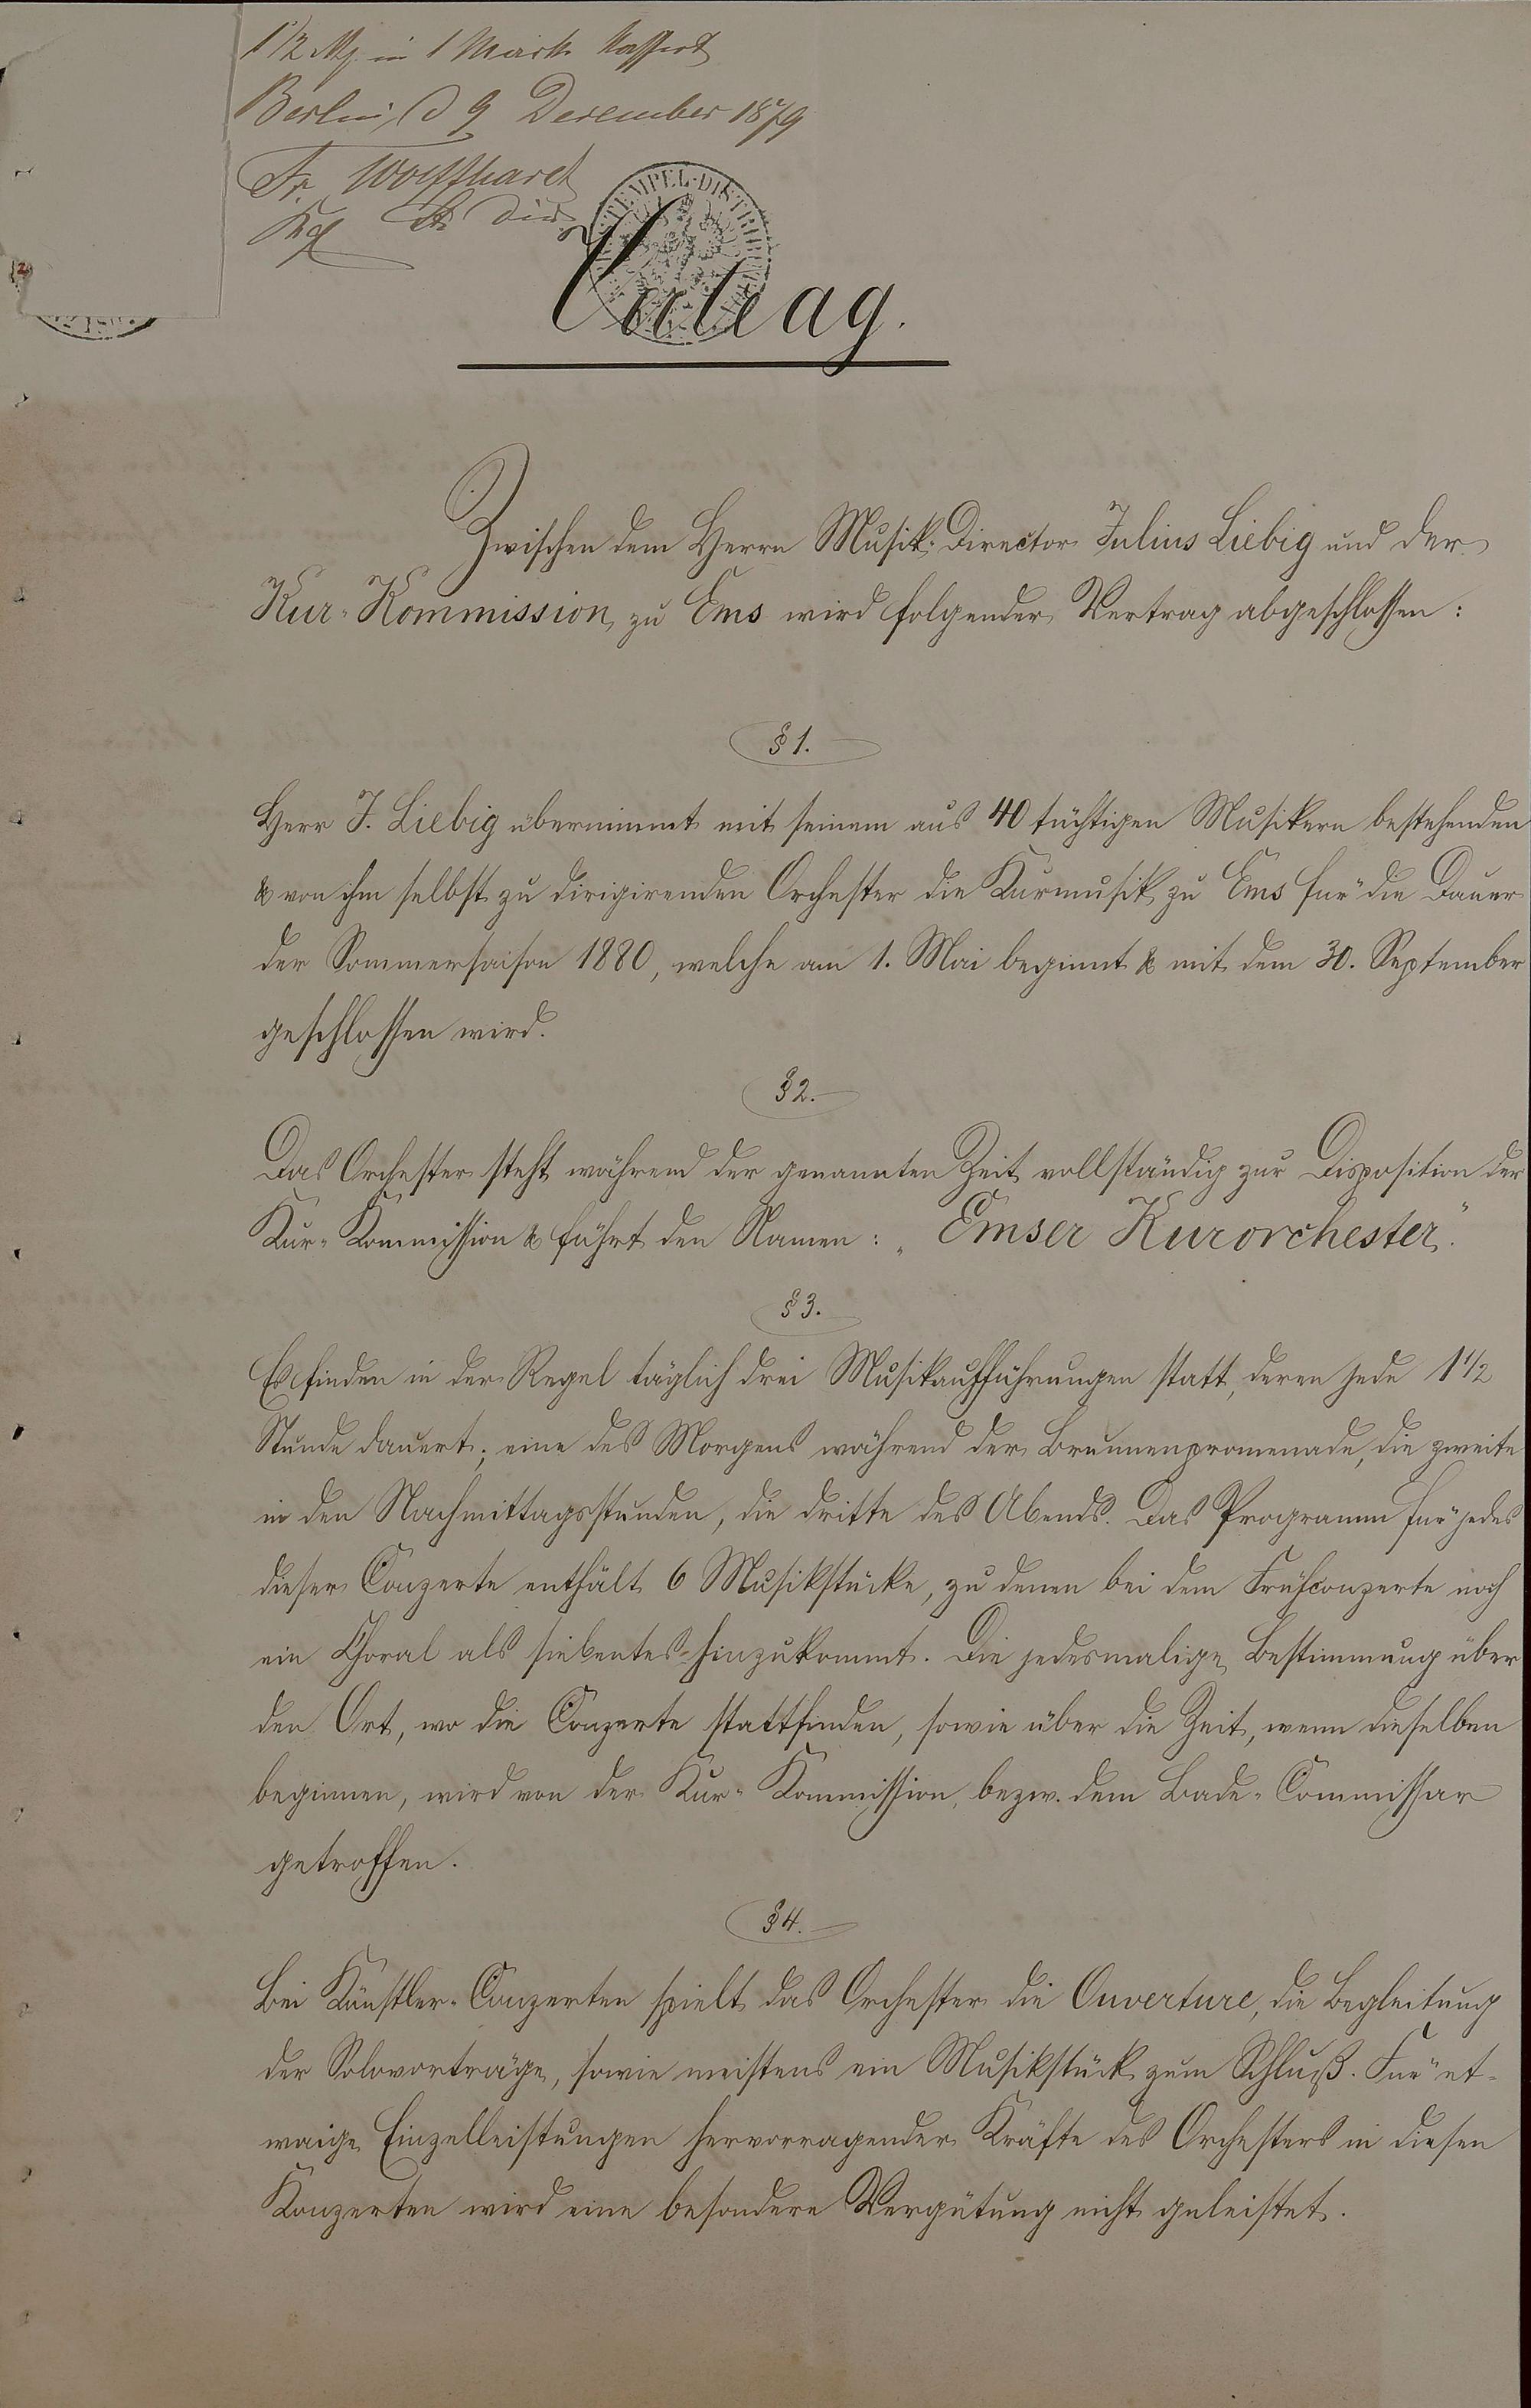 1 1/2 M in 1 Mark
Berlin, d 9 Dezember 1879
Fr. Wolffhardt
Kgl
STEMPEL-DISTRI
Vertrag.
Zwischen dem Herrn Musik-Director Julius Liebig und der
Kur-Kommission zu Ems wird folgender Vertrag abgeschlossen:
§ 1.
Herr J. Liebig übernimmt mit seinem aus 40 tüchtigen Musikern bestehenden
& von ihm selbst zu dirigirenden Orchester die Kurmusik zu Ems für die Dauer
der Sommersaison 1880, welche am 1. Mai beginnt & mit dem 30. September
geschlossen wird.
§ 2.
Das Orchester steht während der genannten Zeit vollständig zur Disposition der
Kur-Kommission & führt den Namen: „Emser Kurorchester".
§ 3.
Es finden in der Regel täglich drei Musikaufführungen statt, deren jede 1 1/2
Stunde dauert; eine des Morgens während der Brunnenpromenade, die zweite
in den Nachmittagsstunden, die dritte des Abends. Das Programm für jedes
dieser Conzerte enthält 6 Musikstücke, zu denen bei dem Frühconzerte noch
ein Choral als siebentes hinzukommt. Die jedesmalige Bestimmung über
den Ort, wo die Conzerte stattfinden, sowie über die Zeit, wenn dieselben
beginnen, wird von der Kur-Kommission, bezw. dem Bade-Commissar
getroffen.
§ 4.
Bei Künstler-Conzerten spielt das Orchester die Ouverture, die Begleitung
der Solovorträge, sowie meistens ein Musikstück zum Schluß. Für et-
waige Einzelleistungen hervorragender Kräfte des Orchesters in diesen
Konzerten wird eine besondere Vergütung nicht geleistet.